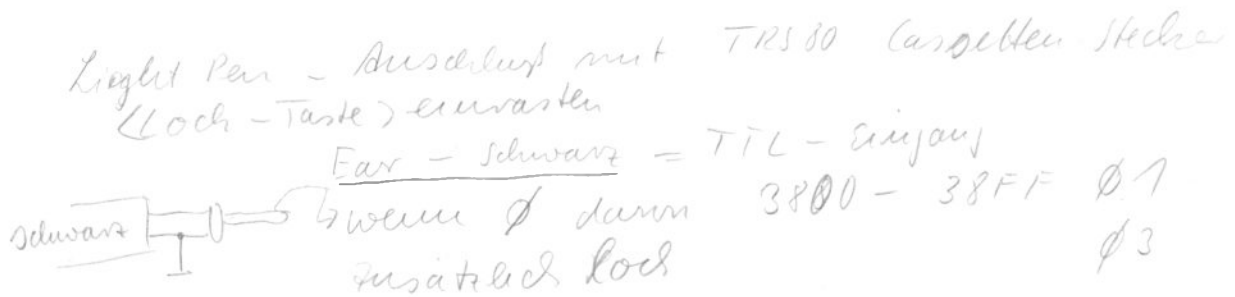 Light Pen - Anschluß mit TRS80 Cassetten-Stecker
<Loch-Taste> einrasten
Ear - Schwarz = TTL-Eingang
wenn Ø dann 3800 - 38FF Ø1
zusätzlich Loch Ø3
Schwarz